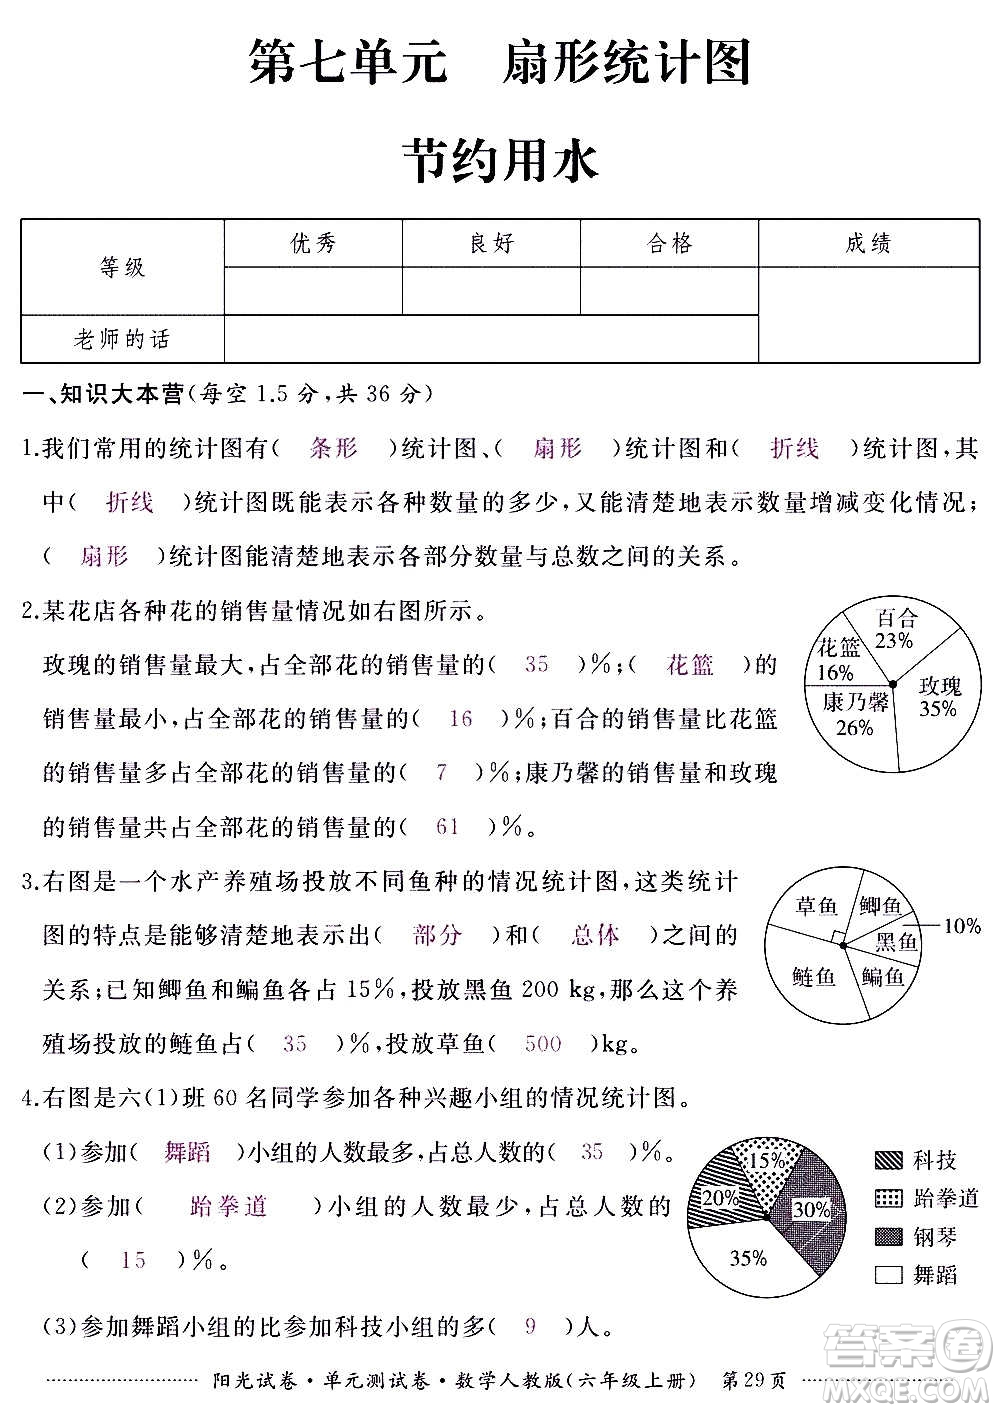 第七单元 扇形统计图
节约用水
等级 优秀 良好 合格 成绩
老师的话
一、知识大本营(每空1.5分,共36分)
1.我们常用的统计图有( 条形 )统计图、( 扇形 )统计图和( 折线 )统计图,其
中( 折线 )统计图既能表示各种数量的多少,又能清楚地表示数量增减变化情况;
( 扇形 )统计图能清楚地表示各部分数量与总数之间的关系。
2.某花店各种花的销售量情况如右图所示。
玫瑰的销售量最大,占全部花的销售量的( 35 )%;( 花篮 )的
销售量最小,占全部花的销售量的( 16 )%;百合的销售量比花篮
的销售量多占全部花的销售量的( 7 )%;康乃馨的销售量和玫瑰
的销售量共占全部花的销售量的( 61 )%。
百合
23%
花篮
16%
玫瑰
35%
康乃馨
26%
3.右图是一个水产养殖场投放不同鱼种的情况统计图,这类统计
图的特点是能够清楚地表示出( 部分 )和( 总体 )之间的
关系;已知鲫鱼和鳊鱼各占15%,投放黑鱼200 kg,那么这个养
殖场投放的鲢鱼占( 35 )%,投放草鱼( 500 )kg。
草鱼 鲫鱼
10%
黑鱼
鲢鱼 鳊鱼
4.右图是六(1)班60名同学参加各种兴趣小组的情况统计图。
(1)参加( 舞蹈 )小组的人数最多,占总人数的( 35 )%。
(2)参加( 跆拳道 )小组的人数最少,占总人数的
( 15 )%。
(3)参加舞蹈小组的比参加科技小组的多( 9 )人。
15%
20%
30%
35%
科技
跆拳道
钢琴
舞蹈
阳光试卷·单元测试卷·数学人教版(六年级上册) 第29页
答案卷
MXQE.COM